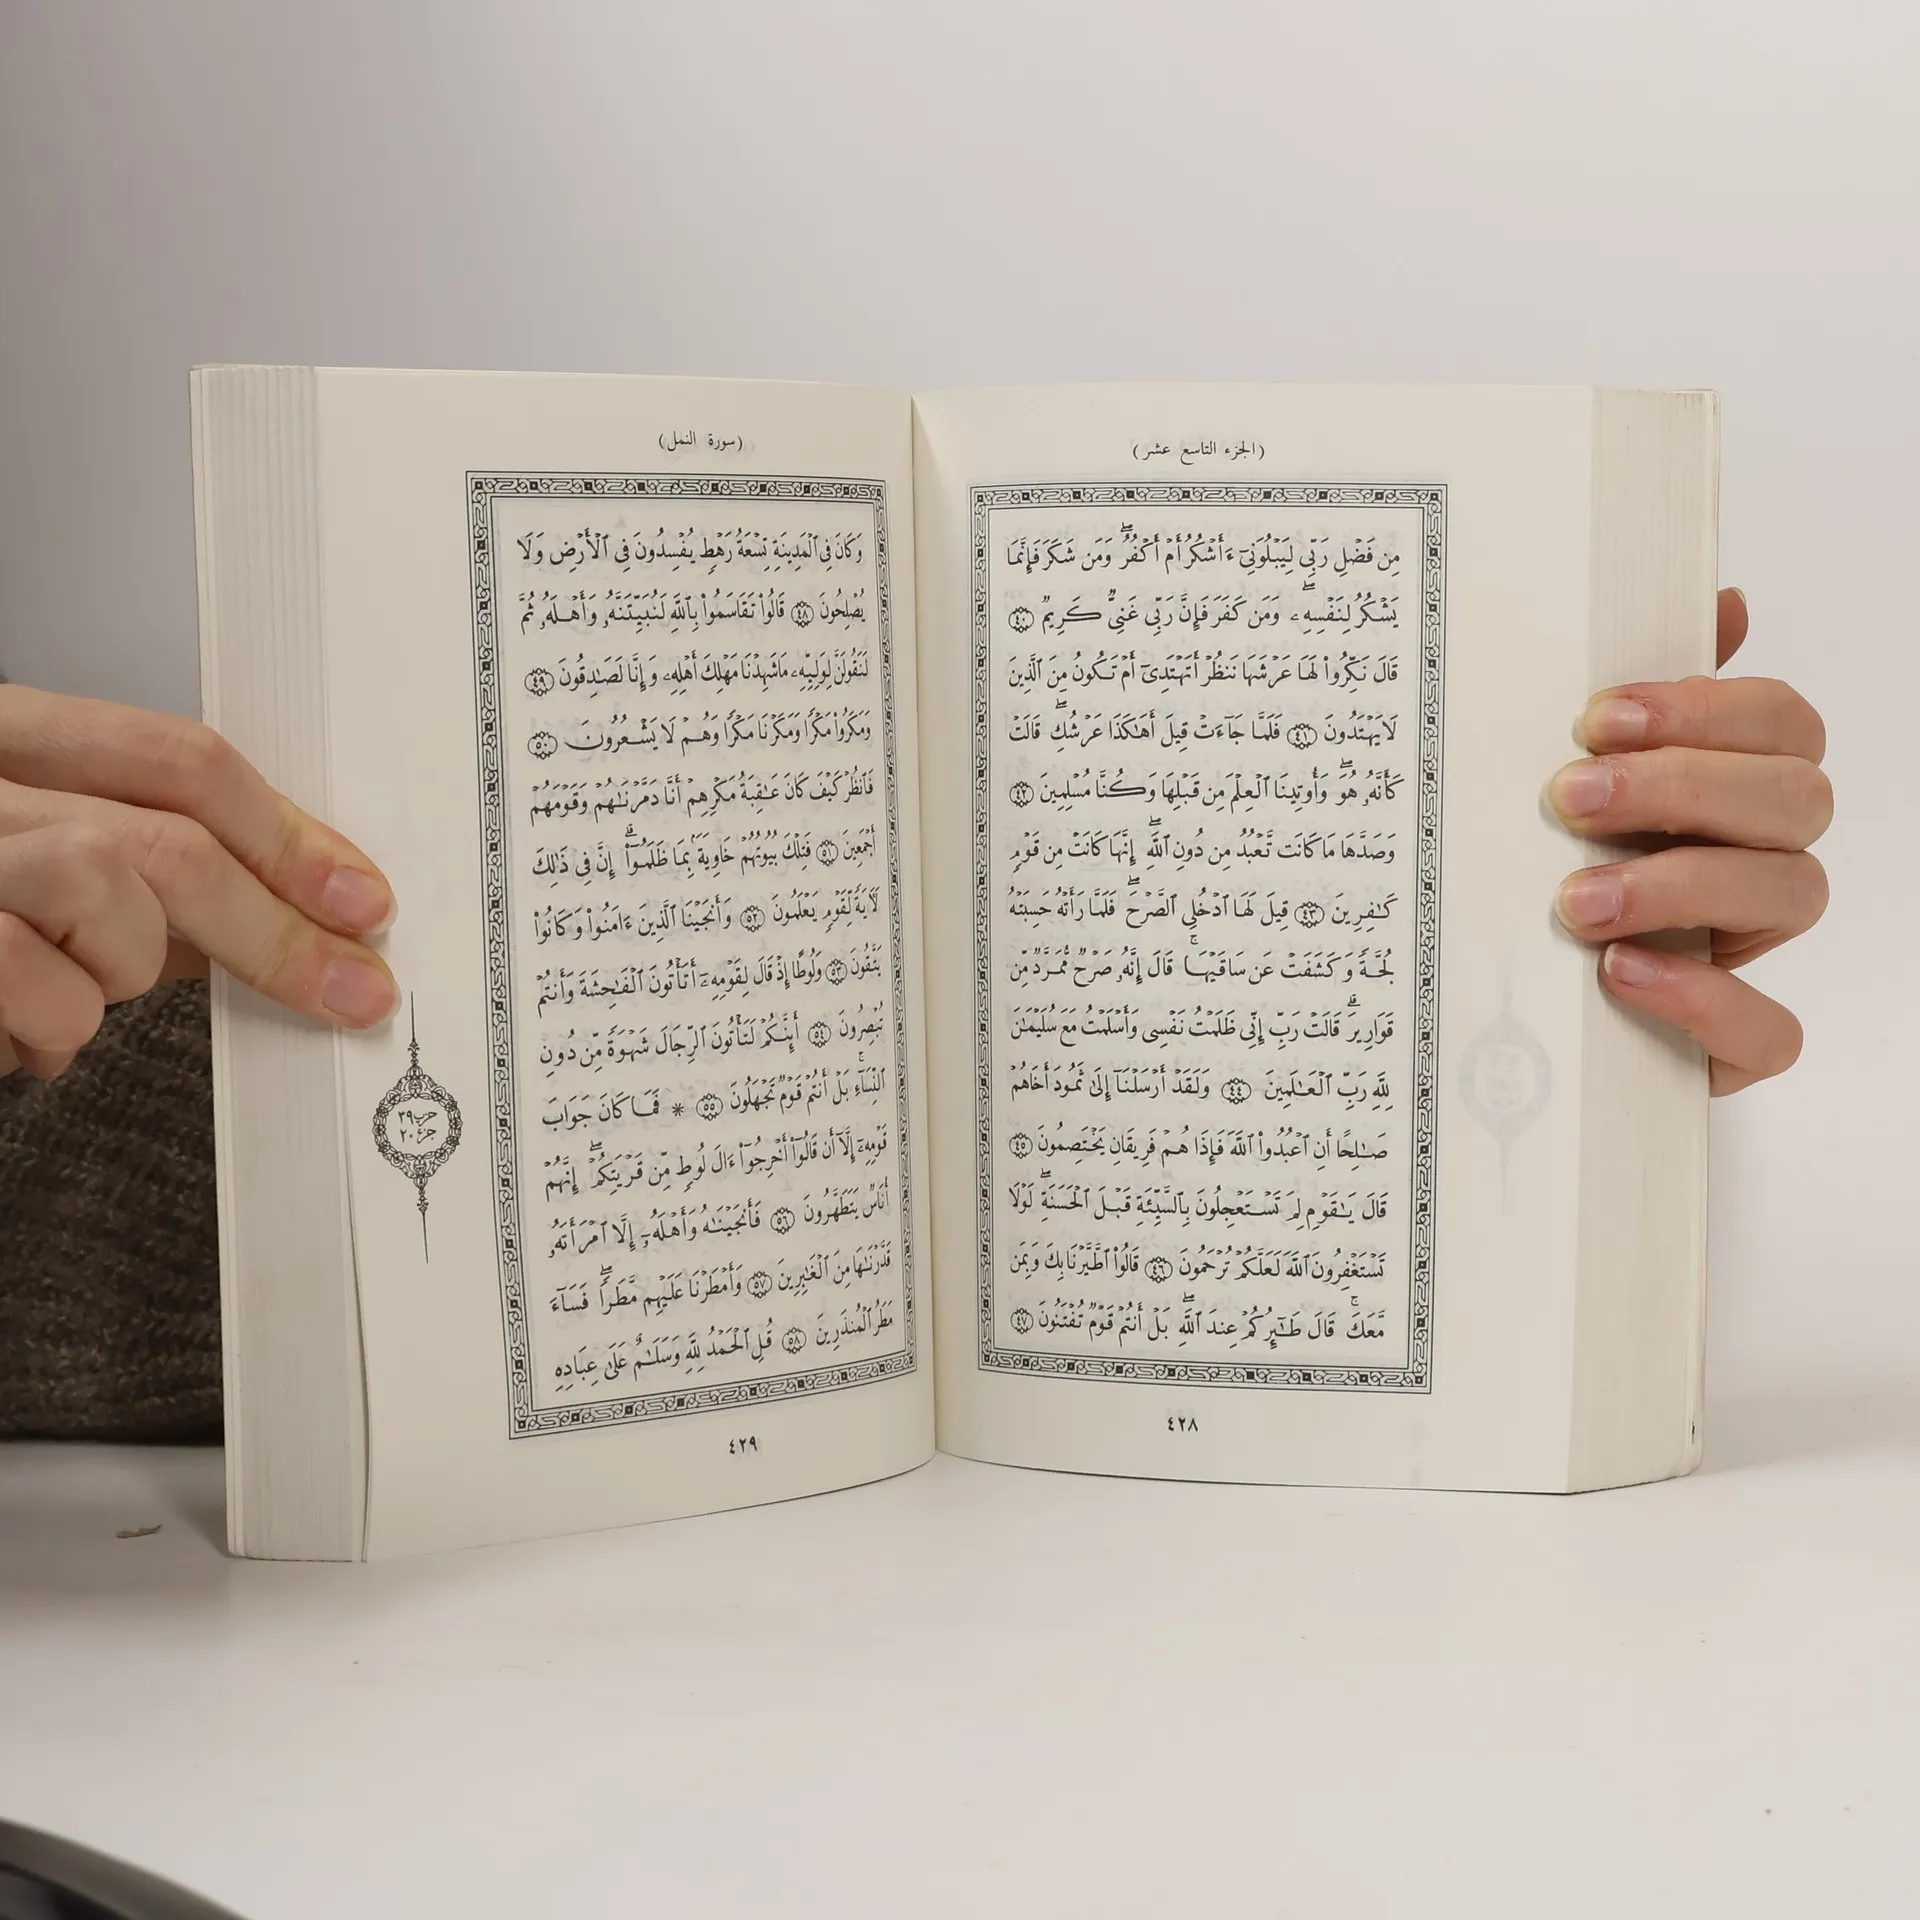 (الجزء التاسع عشر)
مِن فَضْلِ رَبِّى لِيَبْلُوَنِىٓ ءَأَشْكُرُ أَمْ أَكْفُرُ ۖ وَمَن شَكَرَ فَإِنَّمَا
يَشْكُرُ لِنَفْسِهِۦ ۖ وَمَن كَفَرَ فَإِنَّ رَبِّى غَنِىٌّ كَرِيمٌ ٤٠
قَالَ نَكِّرُوا۟ لَهَا عَرْشَهَا نَنظُرْ أَتَهْتَدِىٓ أَمْ تَكُونُ مِنَ ٱلَّذِينَ
لَا يَهْتَدُونَ ٤١ فَلَمَّا جَآءَتْ قِيلَ أَهَـٰكَذَا عَرْشُكِ ۖ قَالَتْ
كَأَنَّهُۥ هُوَ ۚ وَأُوتِينَا ٱلْعِلْمَ مِن قَبْلِهَا وَكُنَّا مُسْلِمِينَ ٤٢
وَصَدَّهَا مَا كَانَت تَّعْبُدُ مِن دُونِ ٱللَّهِ ۖ إِنَّهَا كَانَتْ مِن قَوْمٍ
كَـٰفِرِينَ ٤٣ قِيلَ لَهَا ٱدْخُلِى ٱلصَّرْحَ ۖ فَلَمَّا رَأَتْهُ حَسِبَتْهُ
لُجَّةً وَكَشَفَتْ عَن سَاقَيْهَا ۚ قَالَ إِنَّهُۥ صَرْحٌ مُّمَرَّدٌ مِّن
قَوَارِيرَ ۗ قَالَتْ رَبِّ إِنِّى ظَلَمْتُ نَفْسِى وَأَسْلَمْتُ مَعَ سُلَيْمَـٰنَ
لِلَّهِ رَبِّ ٱلْعَـٰلَمِينَ ٤٤ وَلَقَدْ أَرْسَلْنَآ إِلَىٰ ثَمُودَ أَخَاهُمْ
صَـٰلِحًا أَنِ ٱعْبُدُوا۟ ٱللَّهَ فَإِذَا هُمْ فَرِيقَانِ يَخْتَصِمُونَ ٤٥
قَالَ يَـٰقَوْمِ لِمَ تَسْتَعْجِلُونَ بِٱلسَّيِّئَةِ قَبْلَ ٱلْحَسَنَةِ ۖ لَوْلَا
تَسْتَغْفِرُونَ ٱللَّهَ لَعَلَّكُمْ تُرْحَمُونَ ٤٦ قَالُوا۟ ٱطَّيَّرْنَا بِكَ وَبِمَن
مَّعَكَ ۚ قَالَ طَـٰٓئِرُكُمْ عِندَ ٱللَّهِ ۖ بَلْ أَنتُمْ قَوْمٌ تُفْتَنُونَ ٤٧
٤٢٨
(سورة النمل)
وَكَانَ فِى ٱلْمَدِينَةِ تِسْعَةُ رَهْطٍ يُفْسِدُونَ فِى ٱلْأَرْضِ وَلَا
يُصْلِحُونَ ٤٨ قَالُوا۟ تَقَاسَمُوا۟ بِٱللَّهِ لَنُبَيِّتَنَّهُۥ وَأَهْلَهُۥ ثُمَّ
لَنَقُولَنَّ لِوَلِيِّهِۦ مَا شَهِدْنَا مَهْلِكَ أَهْلِهِۦ وَإِنَّا لَصَـٰدِقُونَ ٤٩
وَمَكَرُوا۟ مَكْرًا وَمَكَرْنَا مَكْرًا وَهُمْ لَا يَشْعُرُونَ ٥٠
فَٱنظُرْ كَيْفَ كَانَ عَـٰقِبَةُ مَكْرِهِمْ أَنَّا دَمَّرْنَـٰهُمْ وَقَوْمَهُمْ
أَجْمَعِينَ ٥١ فَتِلْكَ بُيُوتُهُمْ خَاوِيَةًۢ بِمَا ظَلَمُوٓا۟ ۗ إِنَّ فِى ذَٰلِكَ
لَـَٔايَةً لِّقَوْمٍ يَعْلَمُونَ ٥٢ وَأَنجَيْنَا ٱلَّذِينَ ءَامَنُوا۟ وَكَانُوا۟
يَتَّقُونَ ٥٣ وَلُوطًا إِذْ قَالَ لِقَوْمِهِۦٓ أَتَأْتُونَ ٱلْفَـٰحِشَةَ وَأَنتُمْ
تُبْصِرُونَ ٥٤ أَئِنَّكُمْ لَتَأْتُونَ ٱلرِّجَالَ شَهْوَةً مِّن دُونِ
ٱلنِّسَآءِ ۚ بَلْ أَنتُمْ قَوْمٌ تَجْهَلُونَ ٥٥ * فَمَا كَانَ جَوَابَ
قَوْمِهِۦٓ إِلَّآ أَن قَالُوٓا۟ أَخْرِجُوٓا۟ ءَالَ لُوطٍ مِّن قَرْيَتِكُمْ ۖ إِنَّهُمْ
أُنَاسٌ يَتَطَهَّرُونَ ٥٦ فَأَنجَيْنَـٰهُ وَأَهْلَهُۥٓ إِلَّا ٱمْرَأَتَهُۥ
قَدَّرْنَـٰهَا مِنَ ٱلْغَـٰبِرِينَ ٥٧ وَأَمْطَرْنَا عَلَيْهِم مَّطَرًا ۖ فَسَآءَ
مَطَرُ ٱلْمُنذَرِينَ ٥٨ قُلِ ٱلْحَمْدُ لِلَّهِ وَسَلَـٰمٌ عَلَىٰ عِبَادِهِ
حزب ٣٩
جزء ٢٠
٤٢٩